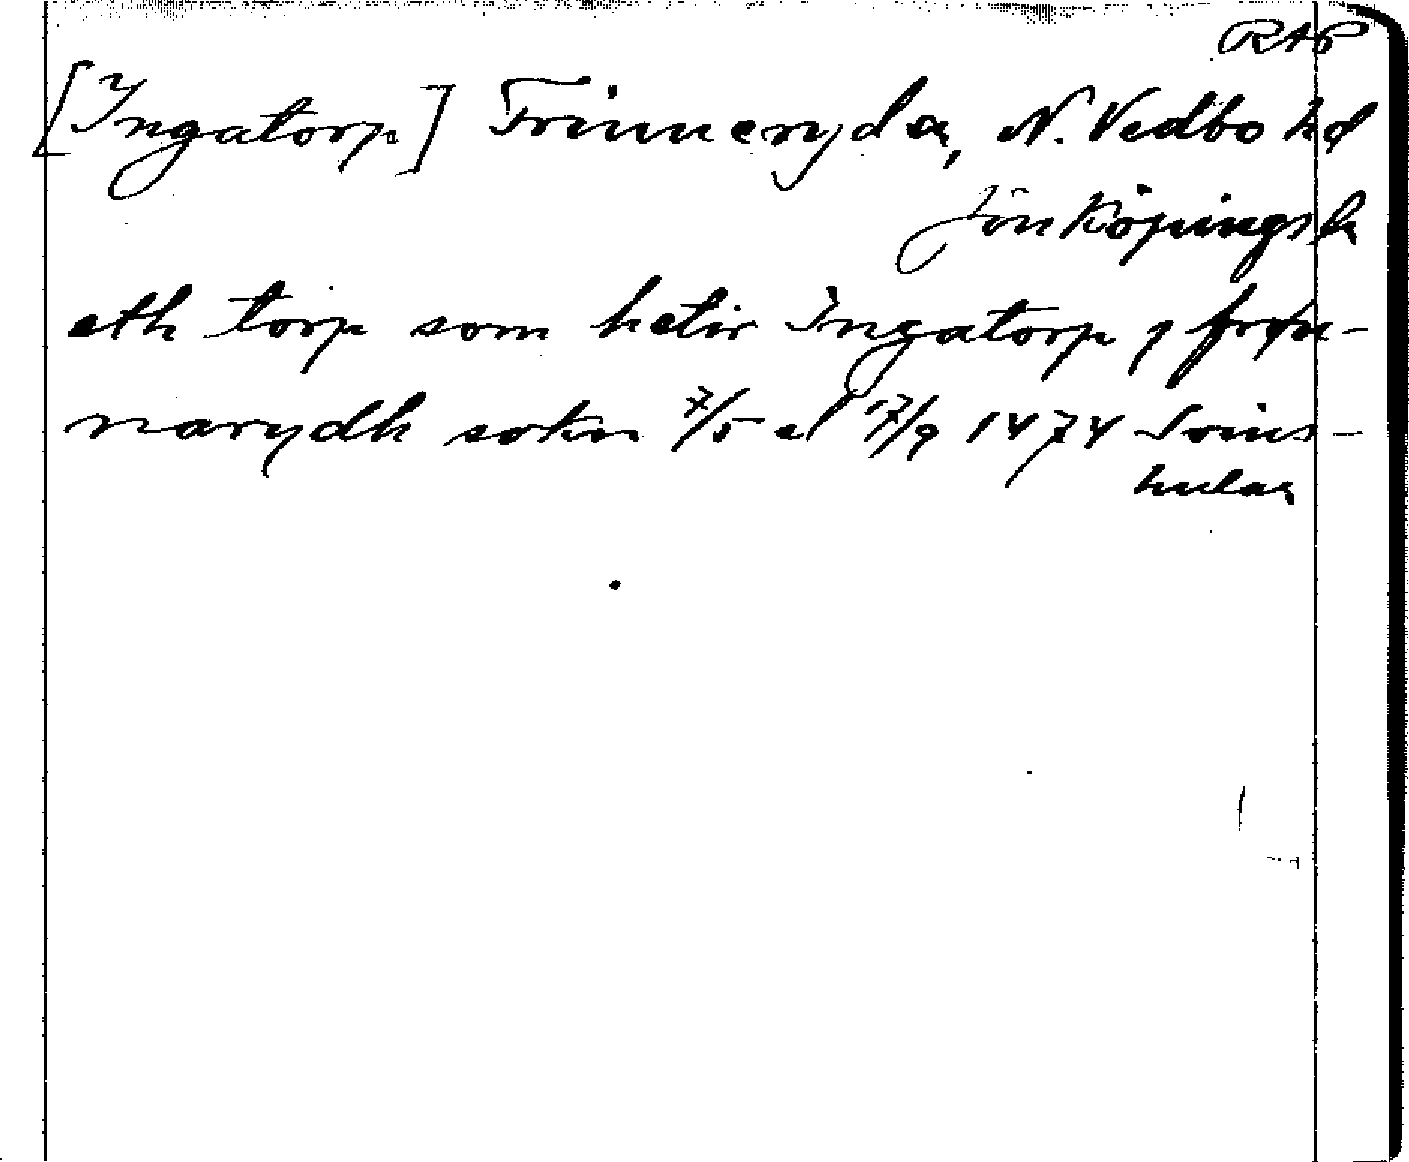 RAP
[Ingatorp] Frinneryda, N. Vedbo hd
Jönköpings l
eth torp som hetir Ingatorp j frøn-
narydh sokn 7/5 el 17/9 1474 Soins-
hula